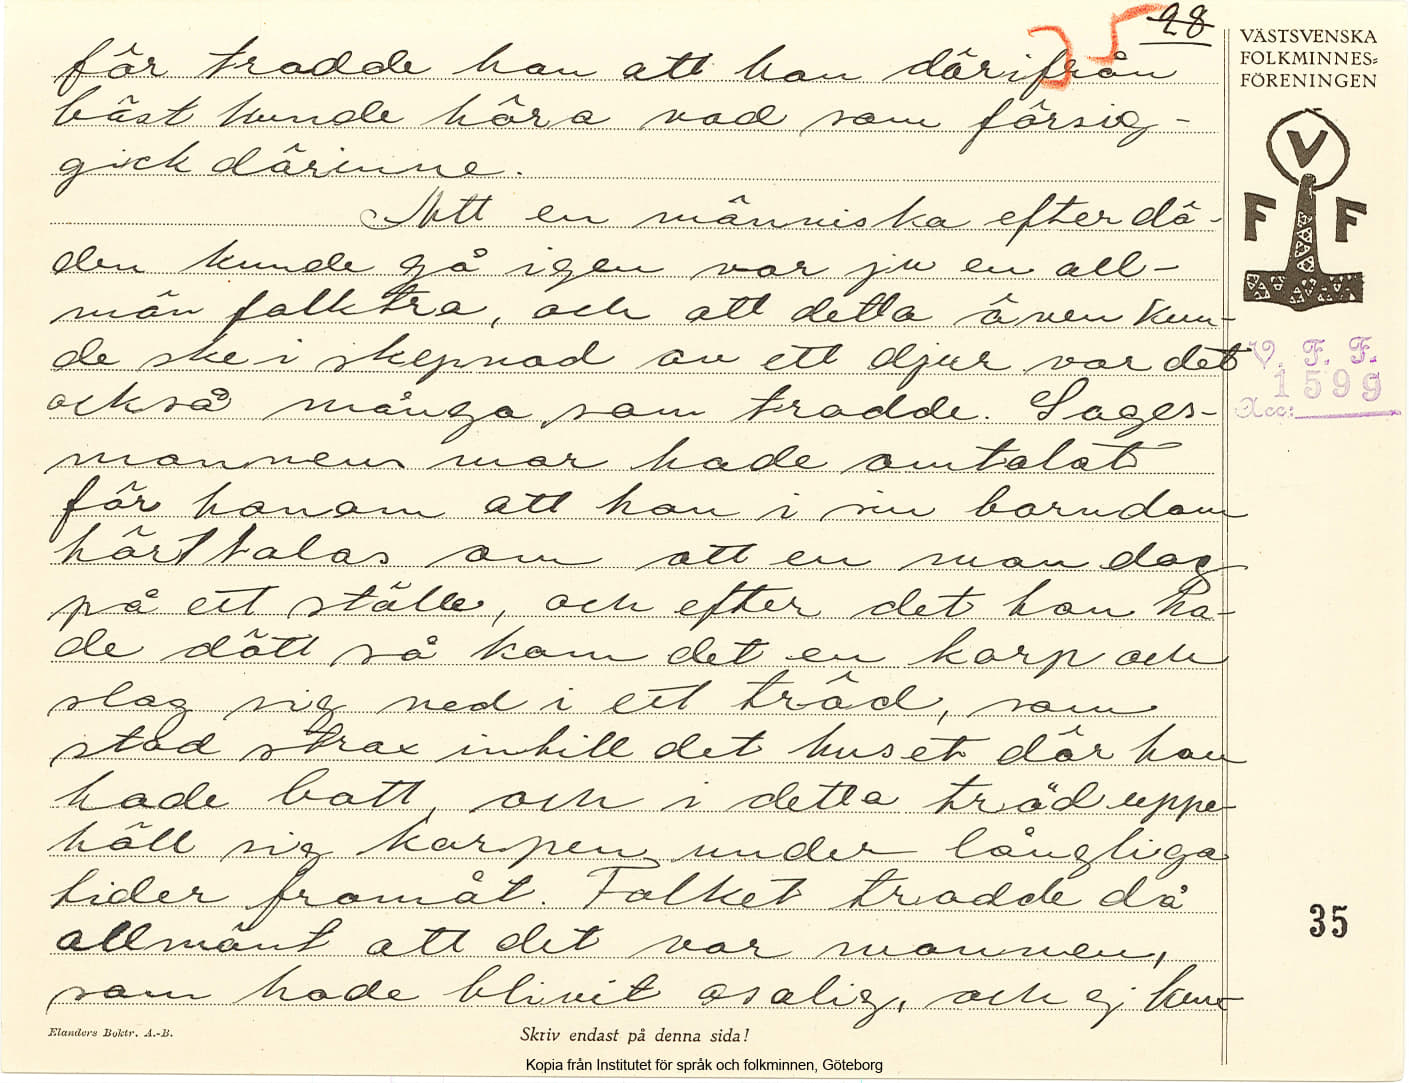 28
35
VÄSTSVENSKA
FOLKMINNES=
FÖRENINGEN
V
F F
V. F. F.
1599
Acc:
för trodde han att han därifrån
bäst kunde höra vad som försig-
gick därinne.
Att en människa efter dö-
den kunde gå igen var ju en all-
män folktro, och att detta även kun-
de ske i skepnad av ett djur var det
också många som trodde. Sages-
mannens mor hade omtalat
för honom att hon i sin barndom
hört talas om att en man dog
på ett ställe, och efter det han ha-
de dött så kom det en korp och
slog sig ned i ett träd, som
stod strax intill det huset där han
hade bott, och i detta träd uppe-
höll sig korpen under långliga
tider framåt. Folket trodde då
allmänt att det var mannen,
som hade blivit osalig, och ej kun-
35
Elanders Boktr. A.-B.
Skriv endast på denna sida!
Kopia från Institutet för språk och folkminnen, Göteborg